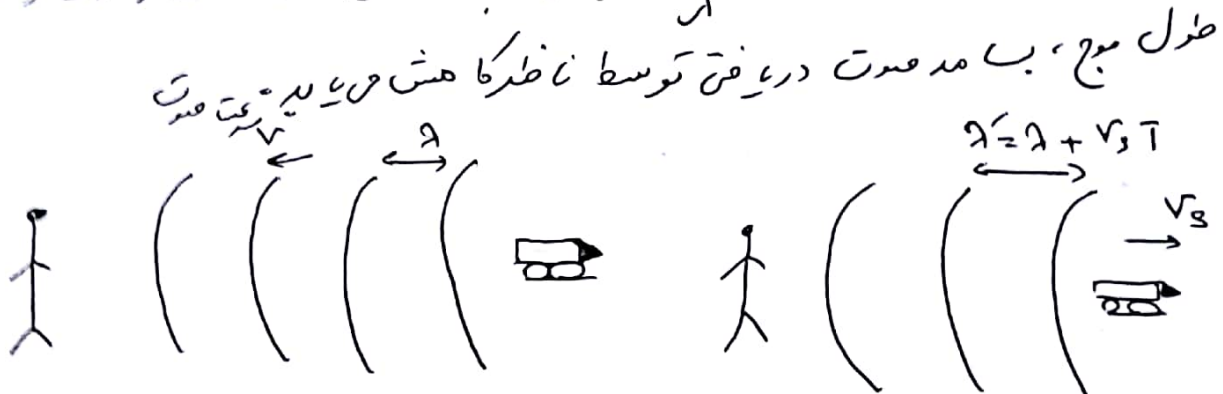 طول موج، بسامد صوت دریافتی توسط ناظر کاهش می‌یابد. سرعت صوت
V λ λ′ = λ + VsT
Vs